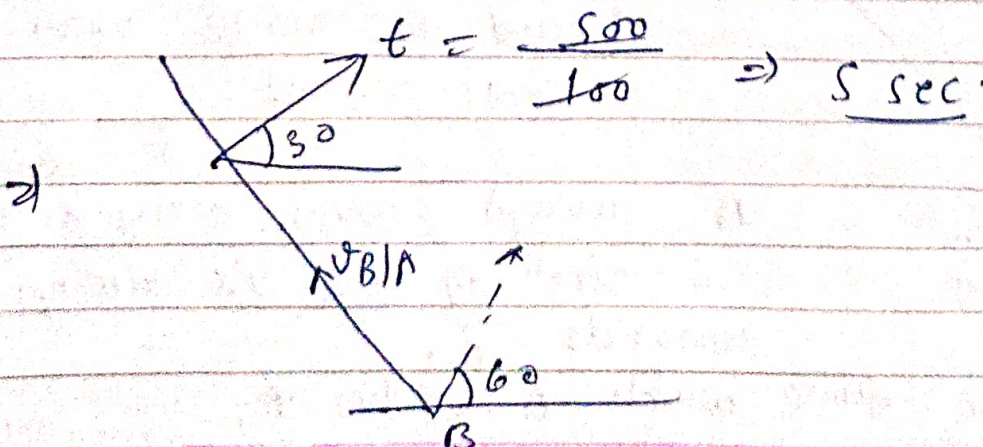 t = 500/100 => 5 sec
30
=>
vB/A
60
B